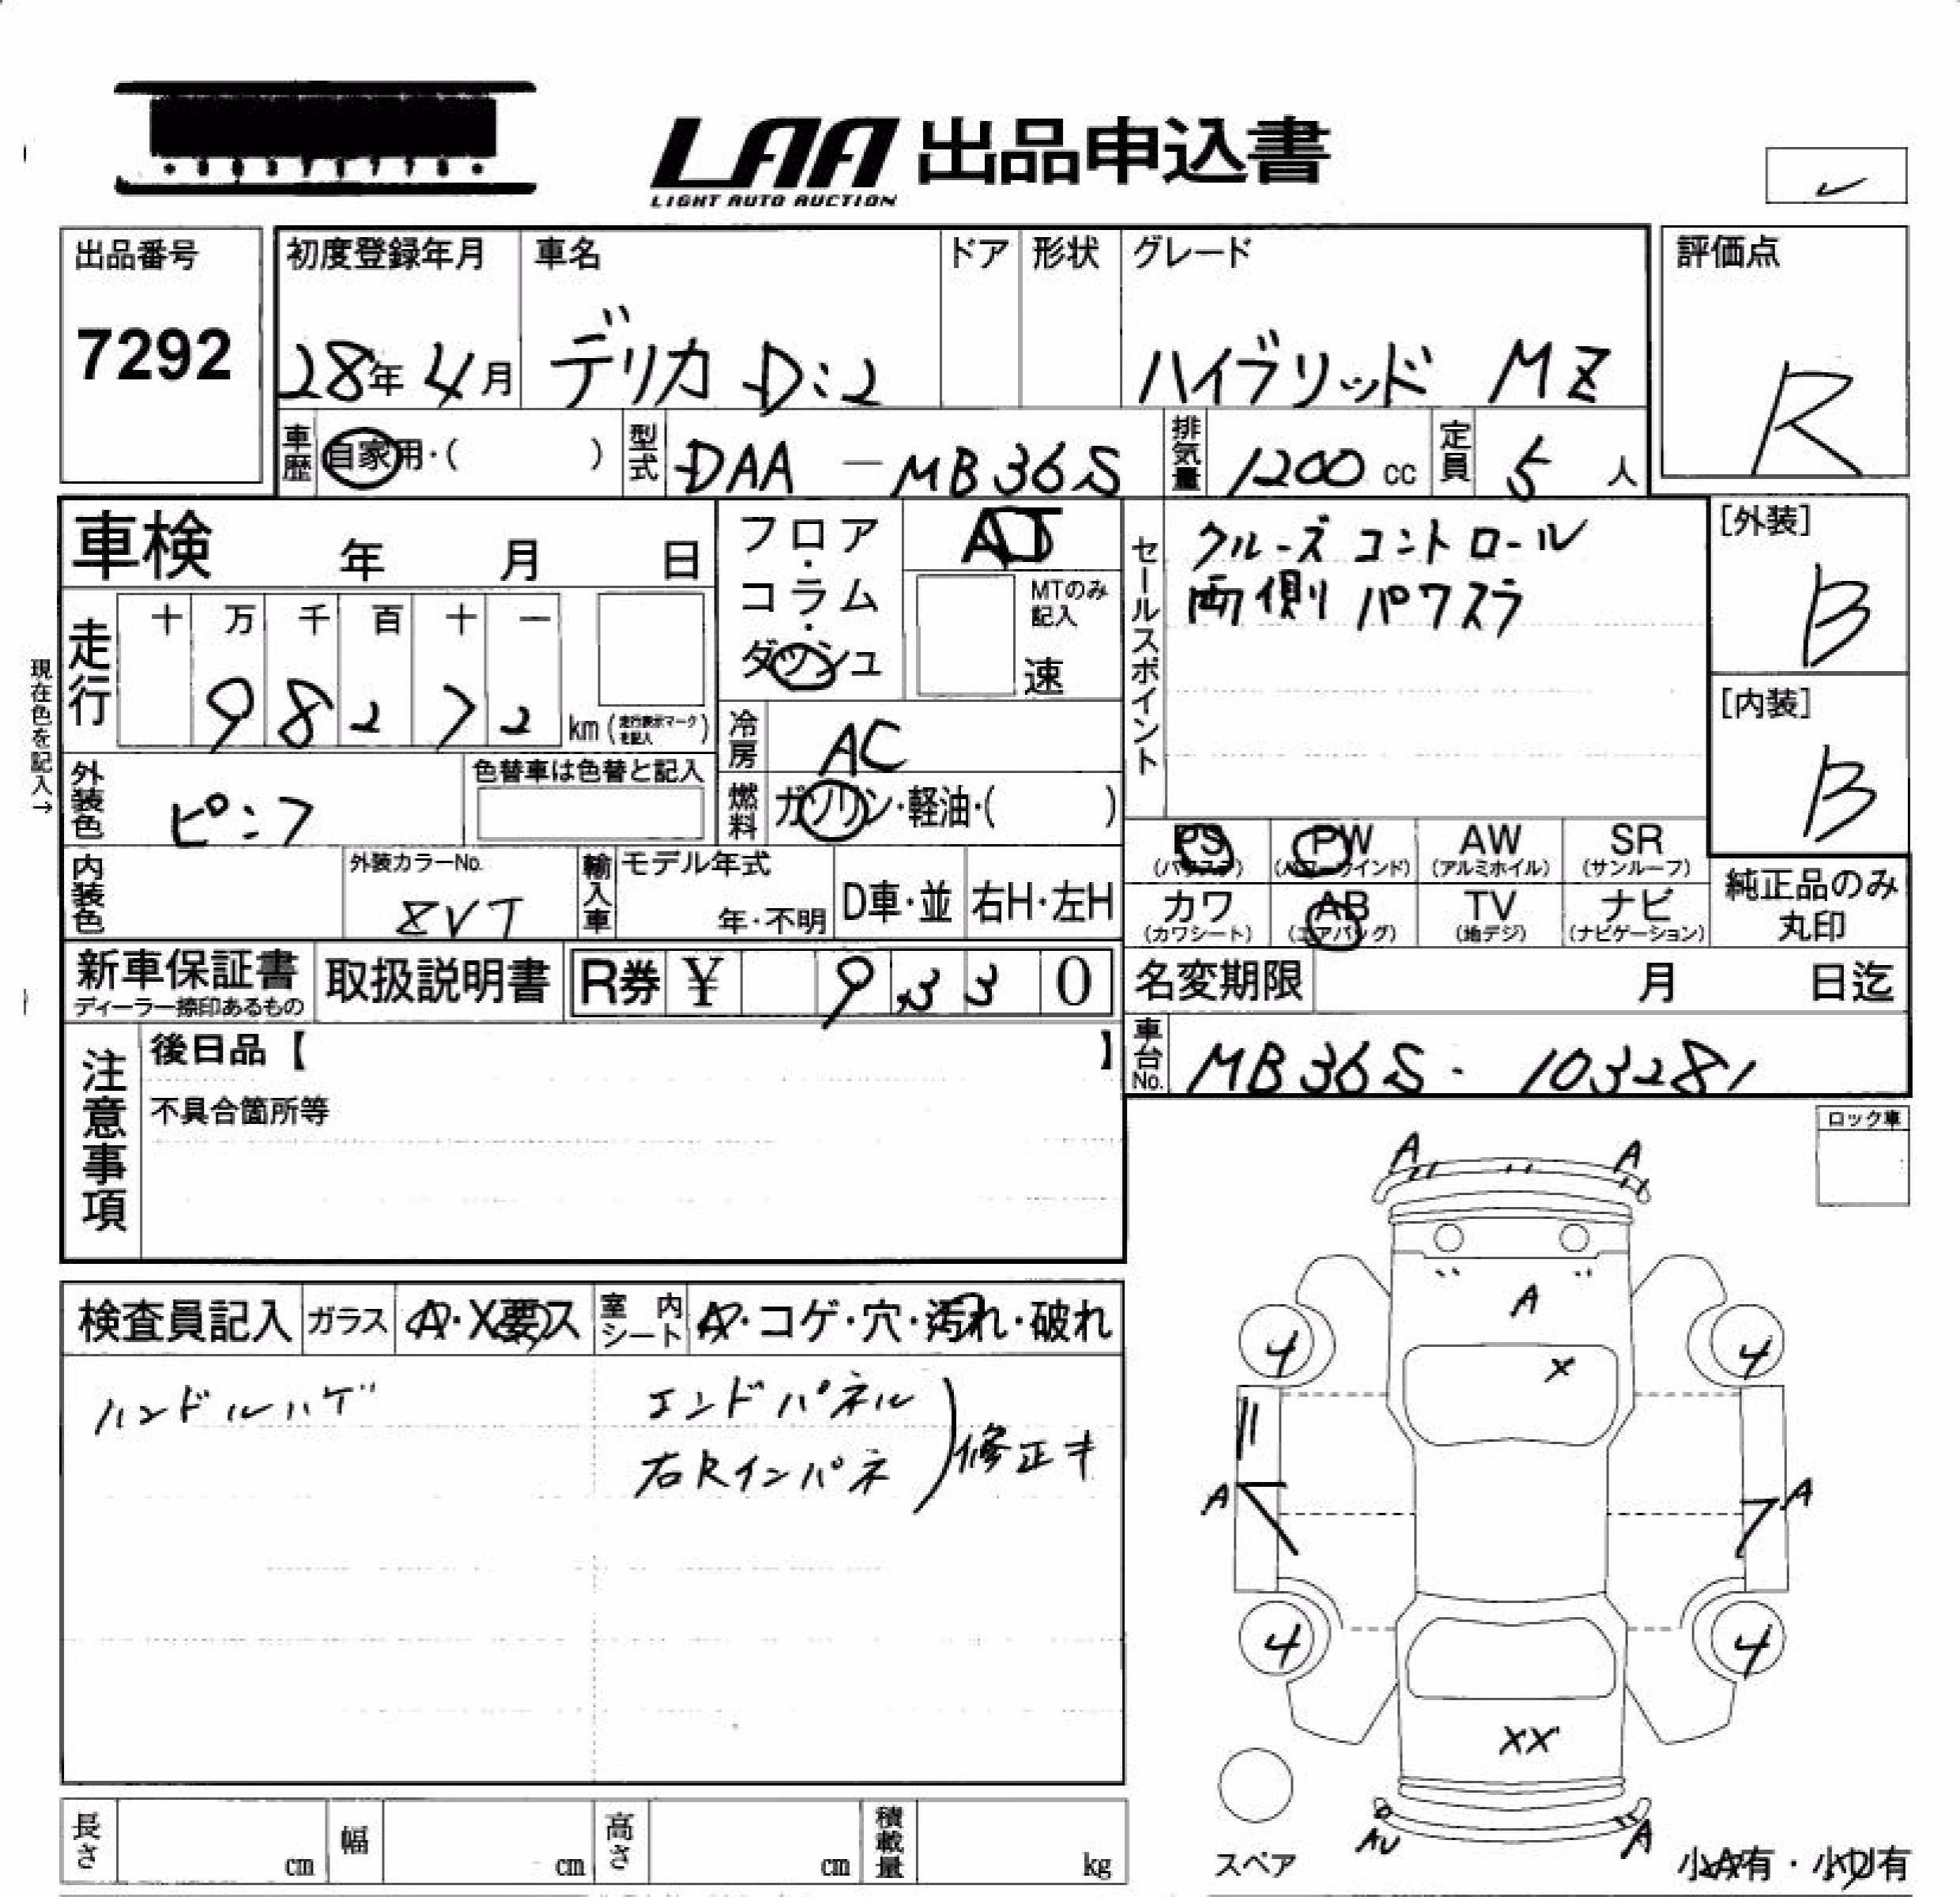 LAA 出品申込書
LIGHT AUTO AUCTION
出品番号
7292
初度登録年月
28年 4月
車名
デリカ D:2
ドア
形状
グレード
ハイブリッド MZ
評価点
R
車歴
自家用・( )
型式
DAA - MB36S
排気量
1200 cc
定員
5 人
車検 年 月 日
フロア・コラム・ダッシュ
AT
MTのみ記入
速
セールスポイント
クルーズ コントロール
両側 パワスラ
[外装]
B
[内装]
B
現在色を記入→
走行
十 万 千 百 十 一
9 8 2 7 2
km (走行表示マークを記入)
冷房
AC
外装色
ピンク
色替車は色替と記入
燃料
ガソリン・軽油・( )
PS AW SR
PW
(パワステ) (パワーウインド) (アルミホイル) (サンルーフ)
カワ AB TV ナビ
(カワシート) (エアバッグ) (地デジ) (ナビゲーション)
純正品のみ
丸印
内装色
外装カラーNo.
ZVT
輸入車
モデル年式
年・不明
D車・並
右H・左H
新車保証書
ディーラー捺印あるもの
取扱説明書
R券 ¥ 9 3 3 0
名変期限 月 日迄
車台No.
MB36S - 103281
注意事項
後日品【 】
不具合箇所等
ロック車
A A
A
X
4 4
A A
4 4
XX
AU A
検査員記入
ガラス
A・X要ス
室内シート
A・コゲ・穴・汚れ・破れ
ハンドルハゲ
エンドパネル
右Rインパネ
修正キ
スペア
小A有・小U有
長さ cm
幅 cm
高さ cm
積載量 kg